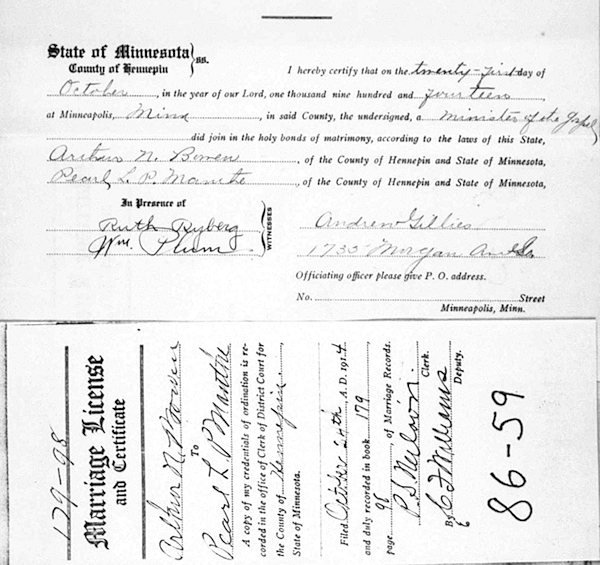 State of Minnesota
County of Hennepin } ss.
I hereby certify that on the twenty-first day of
October, in the year of our Lord, one thousand nine hundred and fourteen
at Minneapolis, Minn, in said County, the undersigned, a Minister of the Gospel
did join in the holy bonds of matrimony, according to the laws of this State,
Arthur N. Bowen, of the County of Hennepin and State of Minnesota,
Pearl L. P. Manthe, of the County of Hennepin and State of Minnesota,
In Presence of
Ruth Ryberg
Wm. Plum
WITNESSES
Andrew Gillies
1735 Morgan Ave So
Officiating officer please give P. O. address.
No. Street
Minneapolis, Minn.
179-98
Marriage License
and Certificate
Arthur N Bowen
To
Pearl L P Manthe
A copy of my credentials of ordination is re-
corded in the office of Clerk of District Court for
the County of Hennepin
State of Minnesota.
Filed October 24th A. D. 1914
and duly recorded in book 179
page 98 of Marriage Records.
P. S. Neilson
Clerk.
By C F Williams
Deputy.
86-59